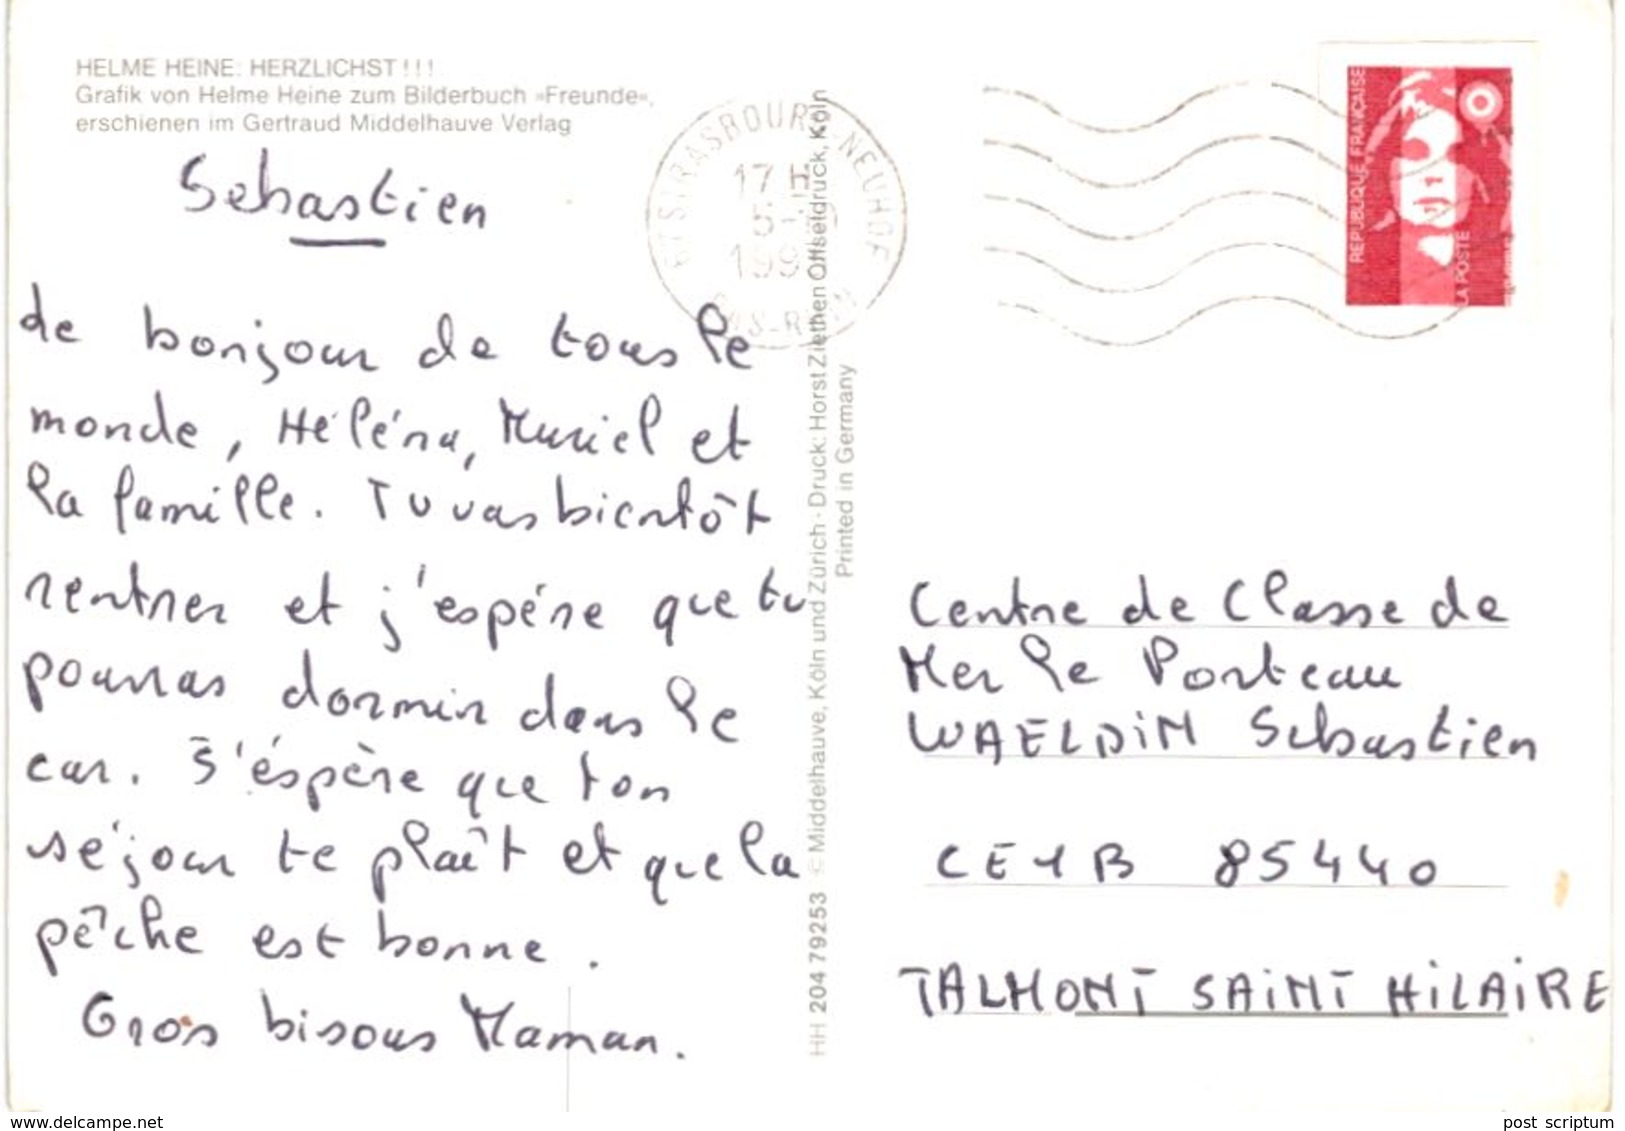 HELME HEINE: HERZLICHST!!!
Grafik von Helme Heine zum Bilderbuch »Freunde«,
erschienen im Gertraud Middelhauve Verlag
Sébastien
de bonjour de tous le
monde, Héléna, Muriel et
la famille. Tu vas bientôt
rentrer et j'espére que tu
pourras dormir dans le
car. J'éspère que ton
séjour te plaît et que la
pêche est bonne.
Gros bisous Maman.
HH 204 79253 © Middelhauve, Köln und Zürich · Druck: Horst Ziethen Offsetdruck, Köln
Printed in Germany
67 STRASBOURG-NEUHOF
17 H
BAS-RHIN
REPUBLIQUE FRANÇAISE
LA POSTE
Centre de Classe de
Mer le Porteau
WAELDIN Sebastien
CE1B 85440
TALMONT SAINT HILAIRE
delcampe.net
post scriptum